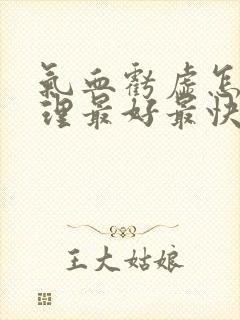 氣血虧虛怎
理最好最快
王大姑娘